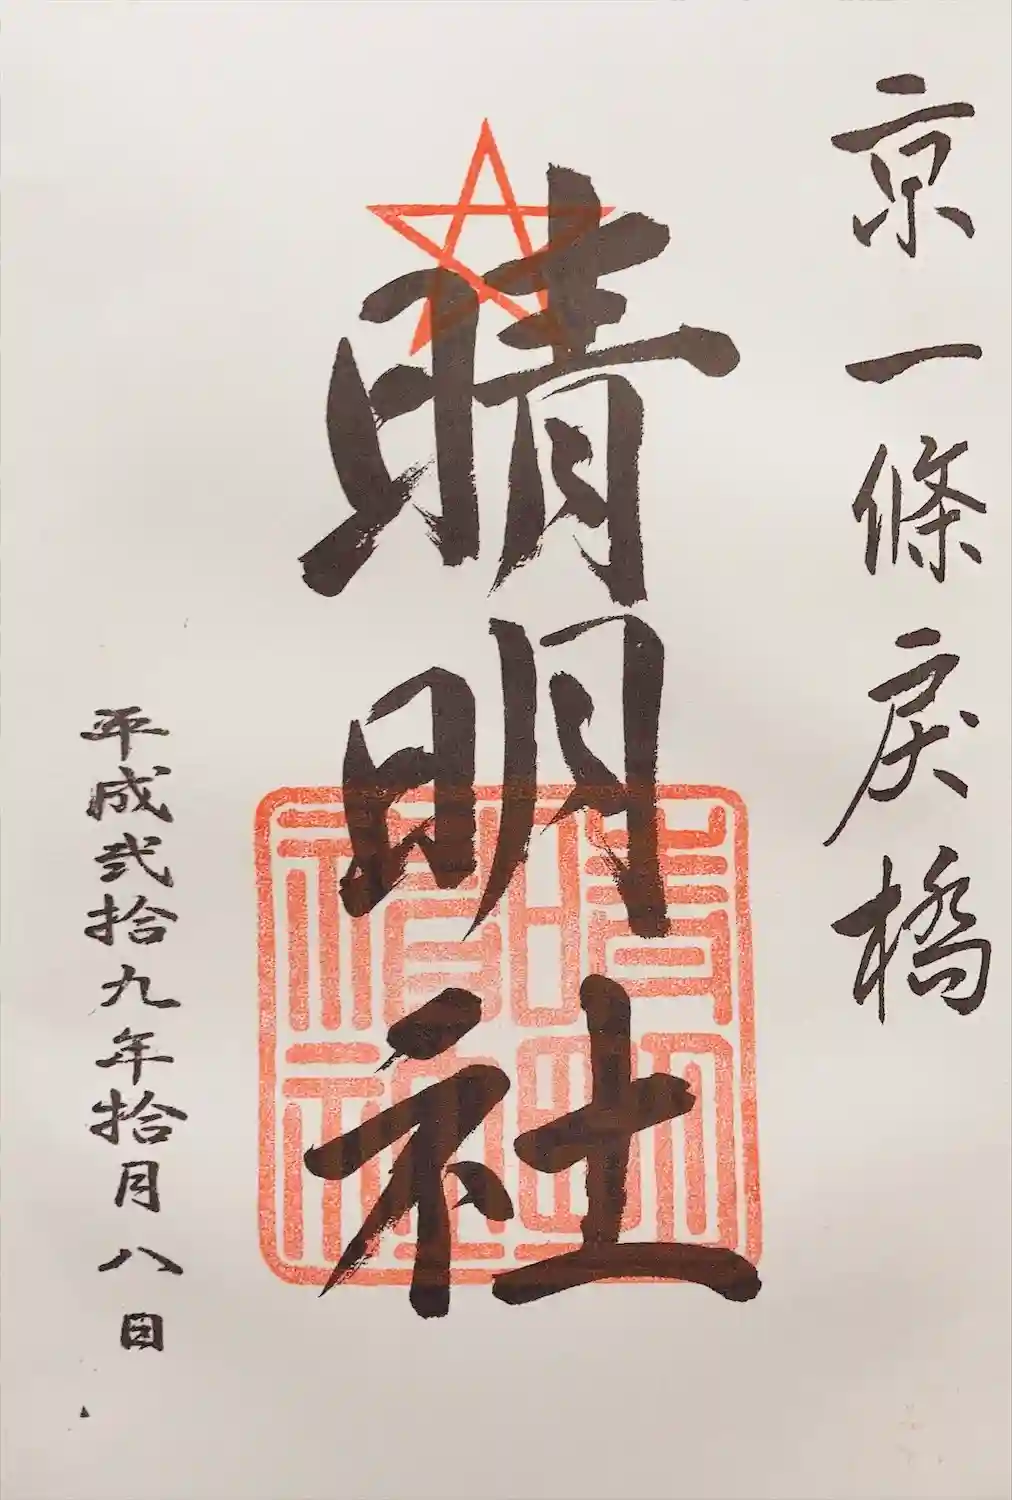 京一條戻橋
晴明社
平成弐拾九年拾月八日